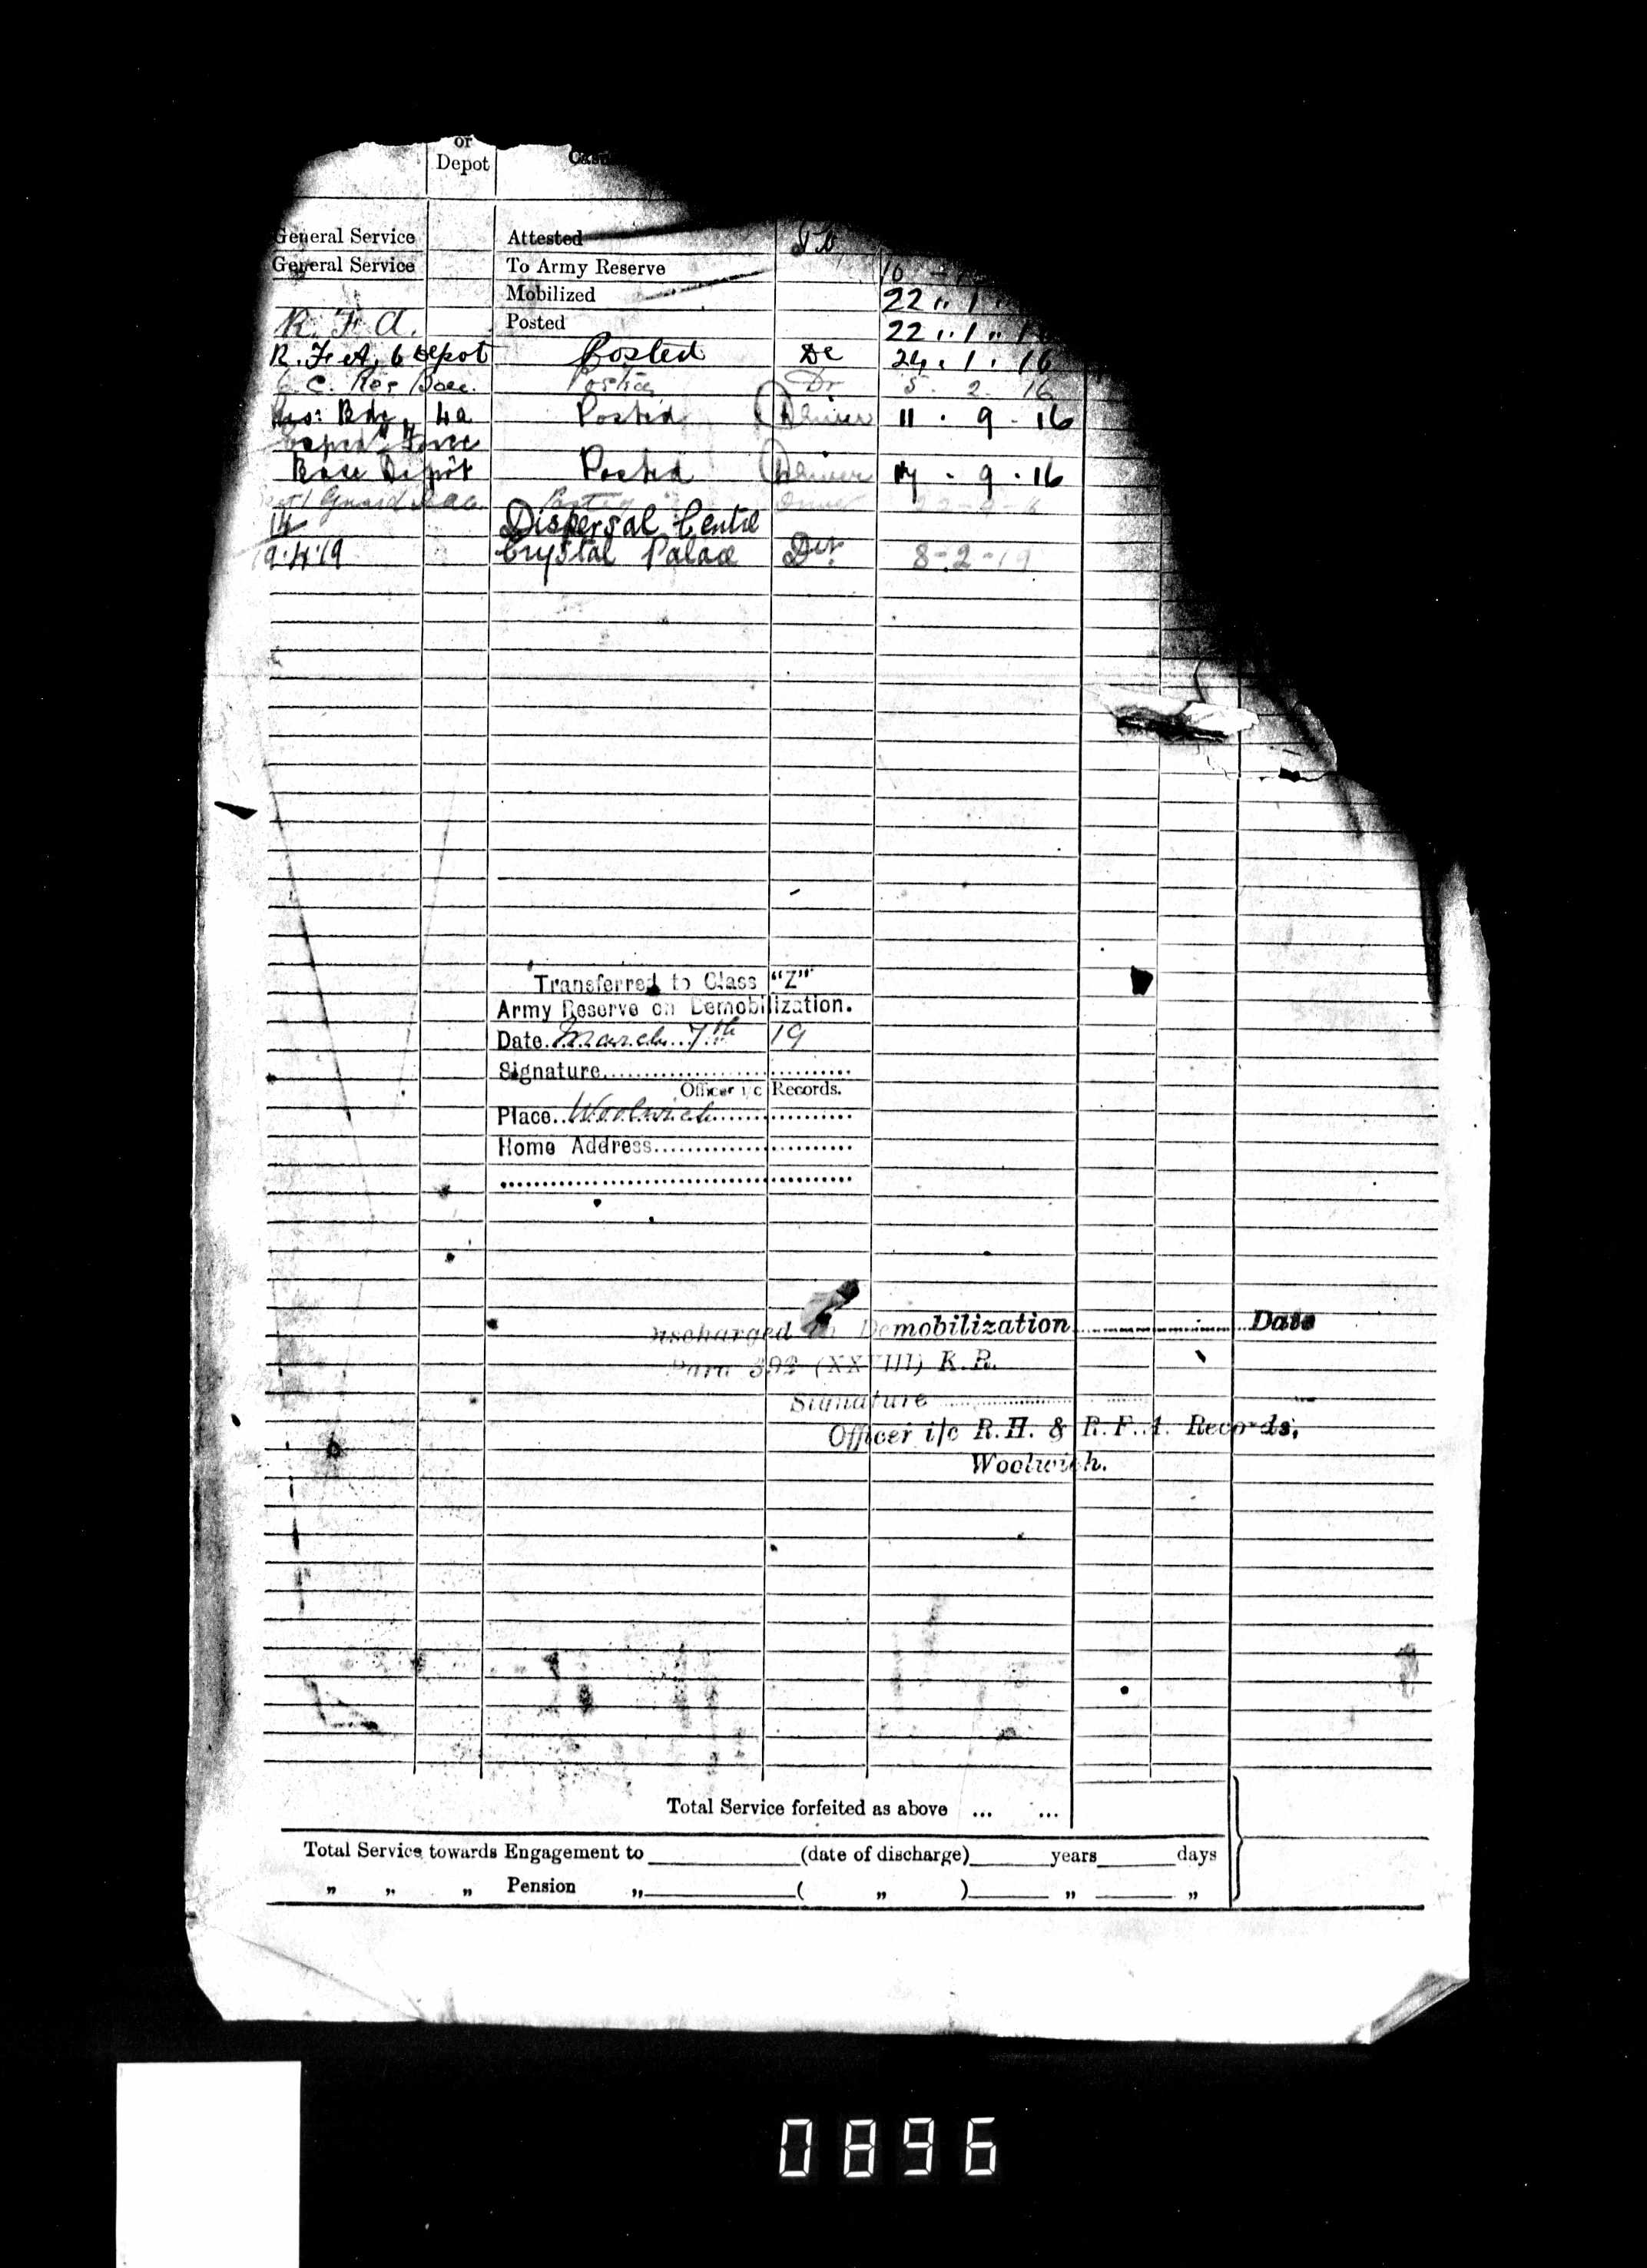 or
Depot
General Service Attested
General Service To Army Reserve 16
Mobilized 22 " 1 "
R. F. A. Posted 22 " 1 " 1
R. F. A. 6 Depot Posted Dr 24 . 1 . 16
C. Res Posted Dr 5 . 2 . 16
Res: Bde 4a Posted Driver 11 . 9 . 16
Force
Base Depôt Posted Driver 17 . 9 . 16
Guard Posted Driver
14 Dispersal Centre
9.4.19 Crystal Palace Dvr. 8-2-19
Transferred to Class "Z"
Army Reserve on Demobilization.
Date March 7th 19
Signature
Officer i/c Records.
Place Woolwich
Home Address
Discharged on Demobilization Date
Para 392 (XXVIII) K.R.
Signature
Officer i/c R.H. & R.F.A. Records,
Woolwich.
Total Service forfeited as above ... ...
Total Service towards Engagement to (date of discharge) years days
" " " Pension " ( " ) " "
0896